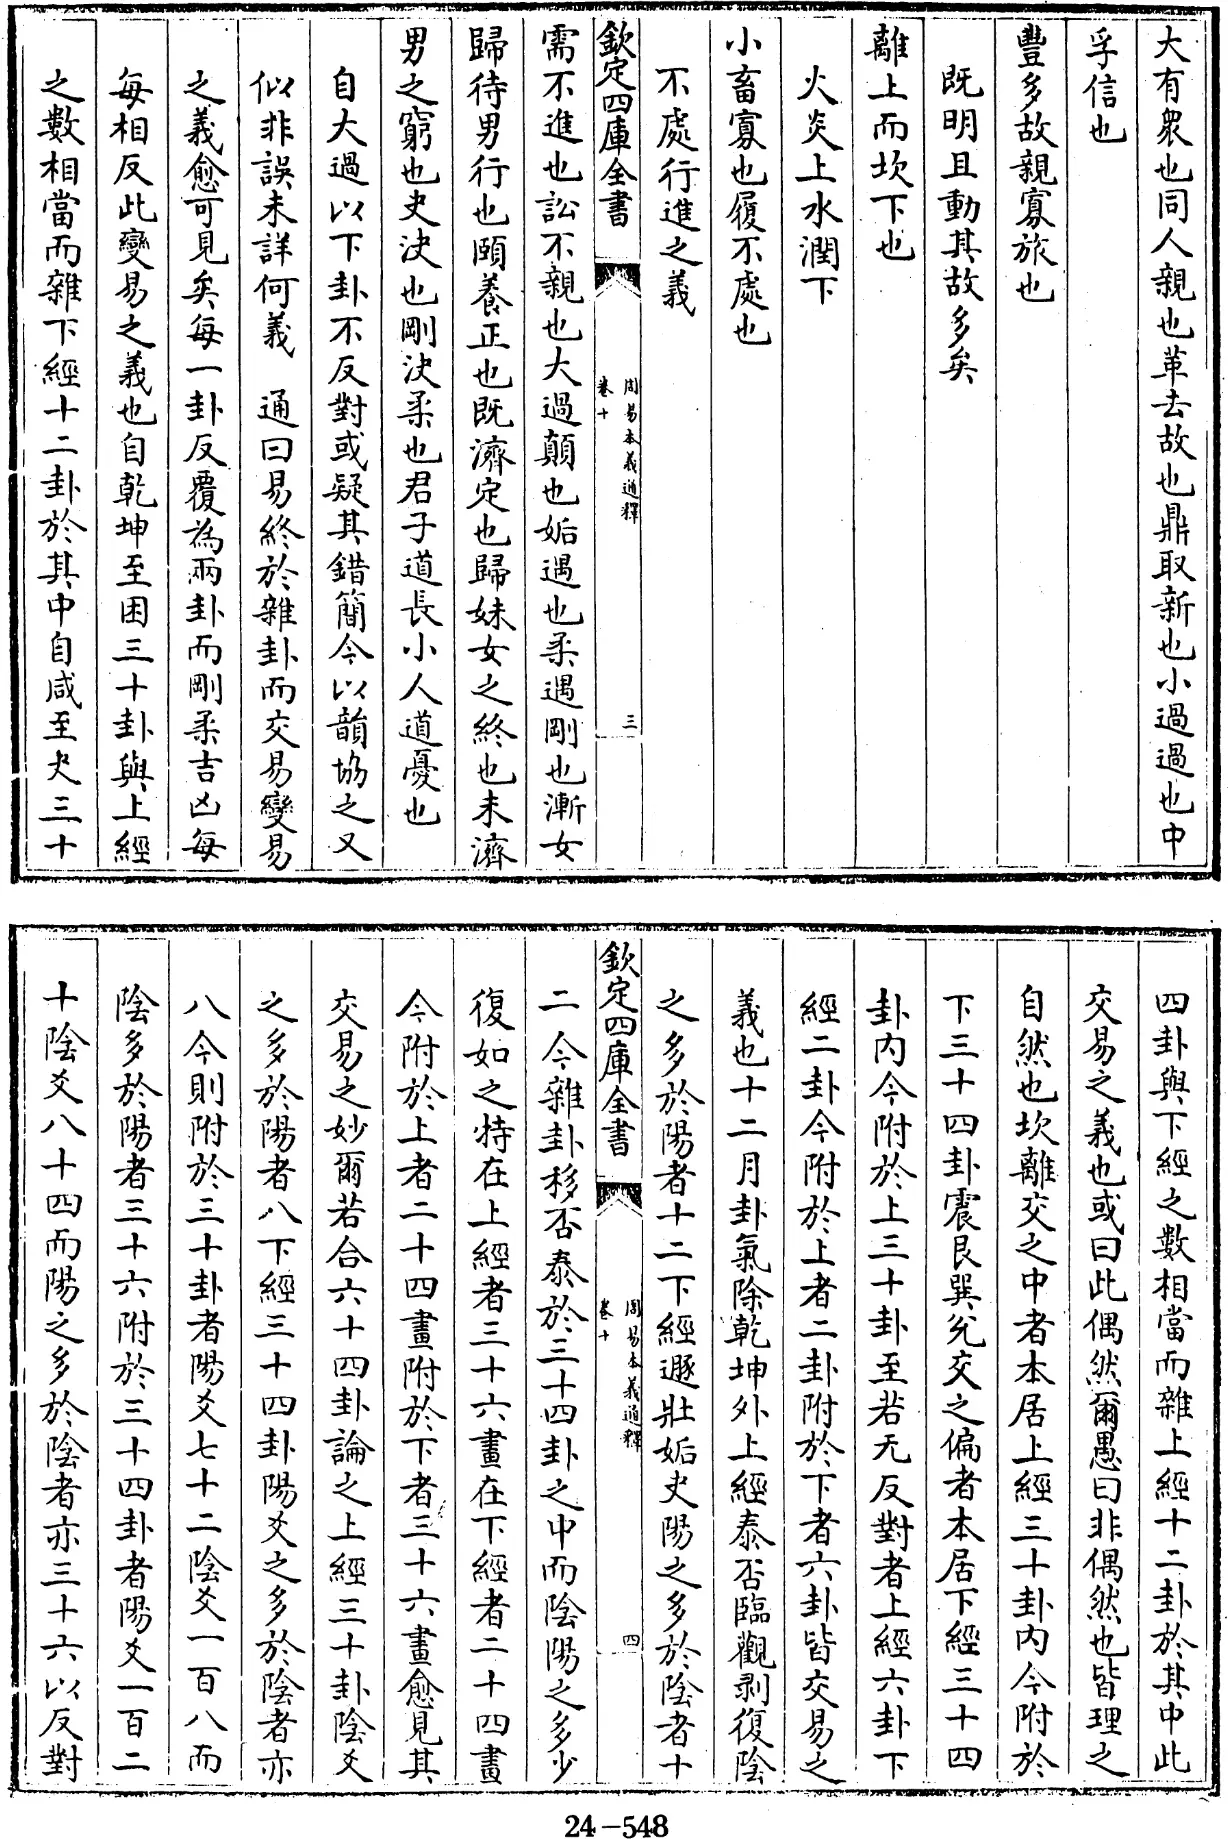 大有衆也同人親也革去故也鼎取新也小過過也中
孚信也
豐多故親寡旅也
既明且動其故多矣
離上而坎下也
火炎上水潤下
小畜寡也履不處也
不處行進之義
欽定四庫全書
周易本義通釋
卷十
三
需不進也訟不親也大過顛也姤遇也柔遇剛也漸女
歸待男行也頤養正也既濟定也歸妹女之終也未濟
男之窮也夬決也剛決柔也君子道長小人道憂也
自大過以下卦不反對或疑其錯簡今以韻協之又
似非誤未詳何義 通曰易終於雜卦而交易變易
之義愈可見矣每一卦反覆為兩卦而剛柔吉凶每
每相反此變易之義也自乾坤至困三十卦與上經
之數相當而雜下經十二卦於其中自咸至夬三十
四卦與下經之數相當而雜上經十二卦於其中此
交易之義也或曰此偶然爾愚曰非偶然也皆理之
自然也坎離交之中者本居上經三十卦内今附於
下三十四卦震艮巽兌交之偏者本居下經三十四
卦内今附於上三十卦至若无反對者上經六卦下
經二卦今附於上者二卦附於下者六卦皆交易之
義也十二月卦氣除乾坤外上經泰否臨觀剥復陰
之多於陽者十二下經遯壯姤夬陽之多於陰者十
欽定四庫全書
周易本義通釋
卷十
四
二今雜卦移否泰於三十四卦之中而陰陽之多少
復如之特在上經者三十六畫在下經者二十四畫
今附於上者二十四畫附於下者三十六畫愈見其
交易之妙爾若合六十四卦論之上經三十卦陰爻
之多於陽者八下經三十四卦陽爻之多於陰者亦
八今則附於三十卦者陽爻七十二陰爻一百八而
陰多於陽者三十六附於三十四卦者陽爻一百二
十陰爻八十四而陽之多於陰者亦三十六以反對
24-548